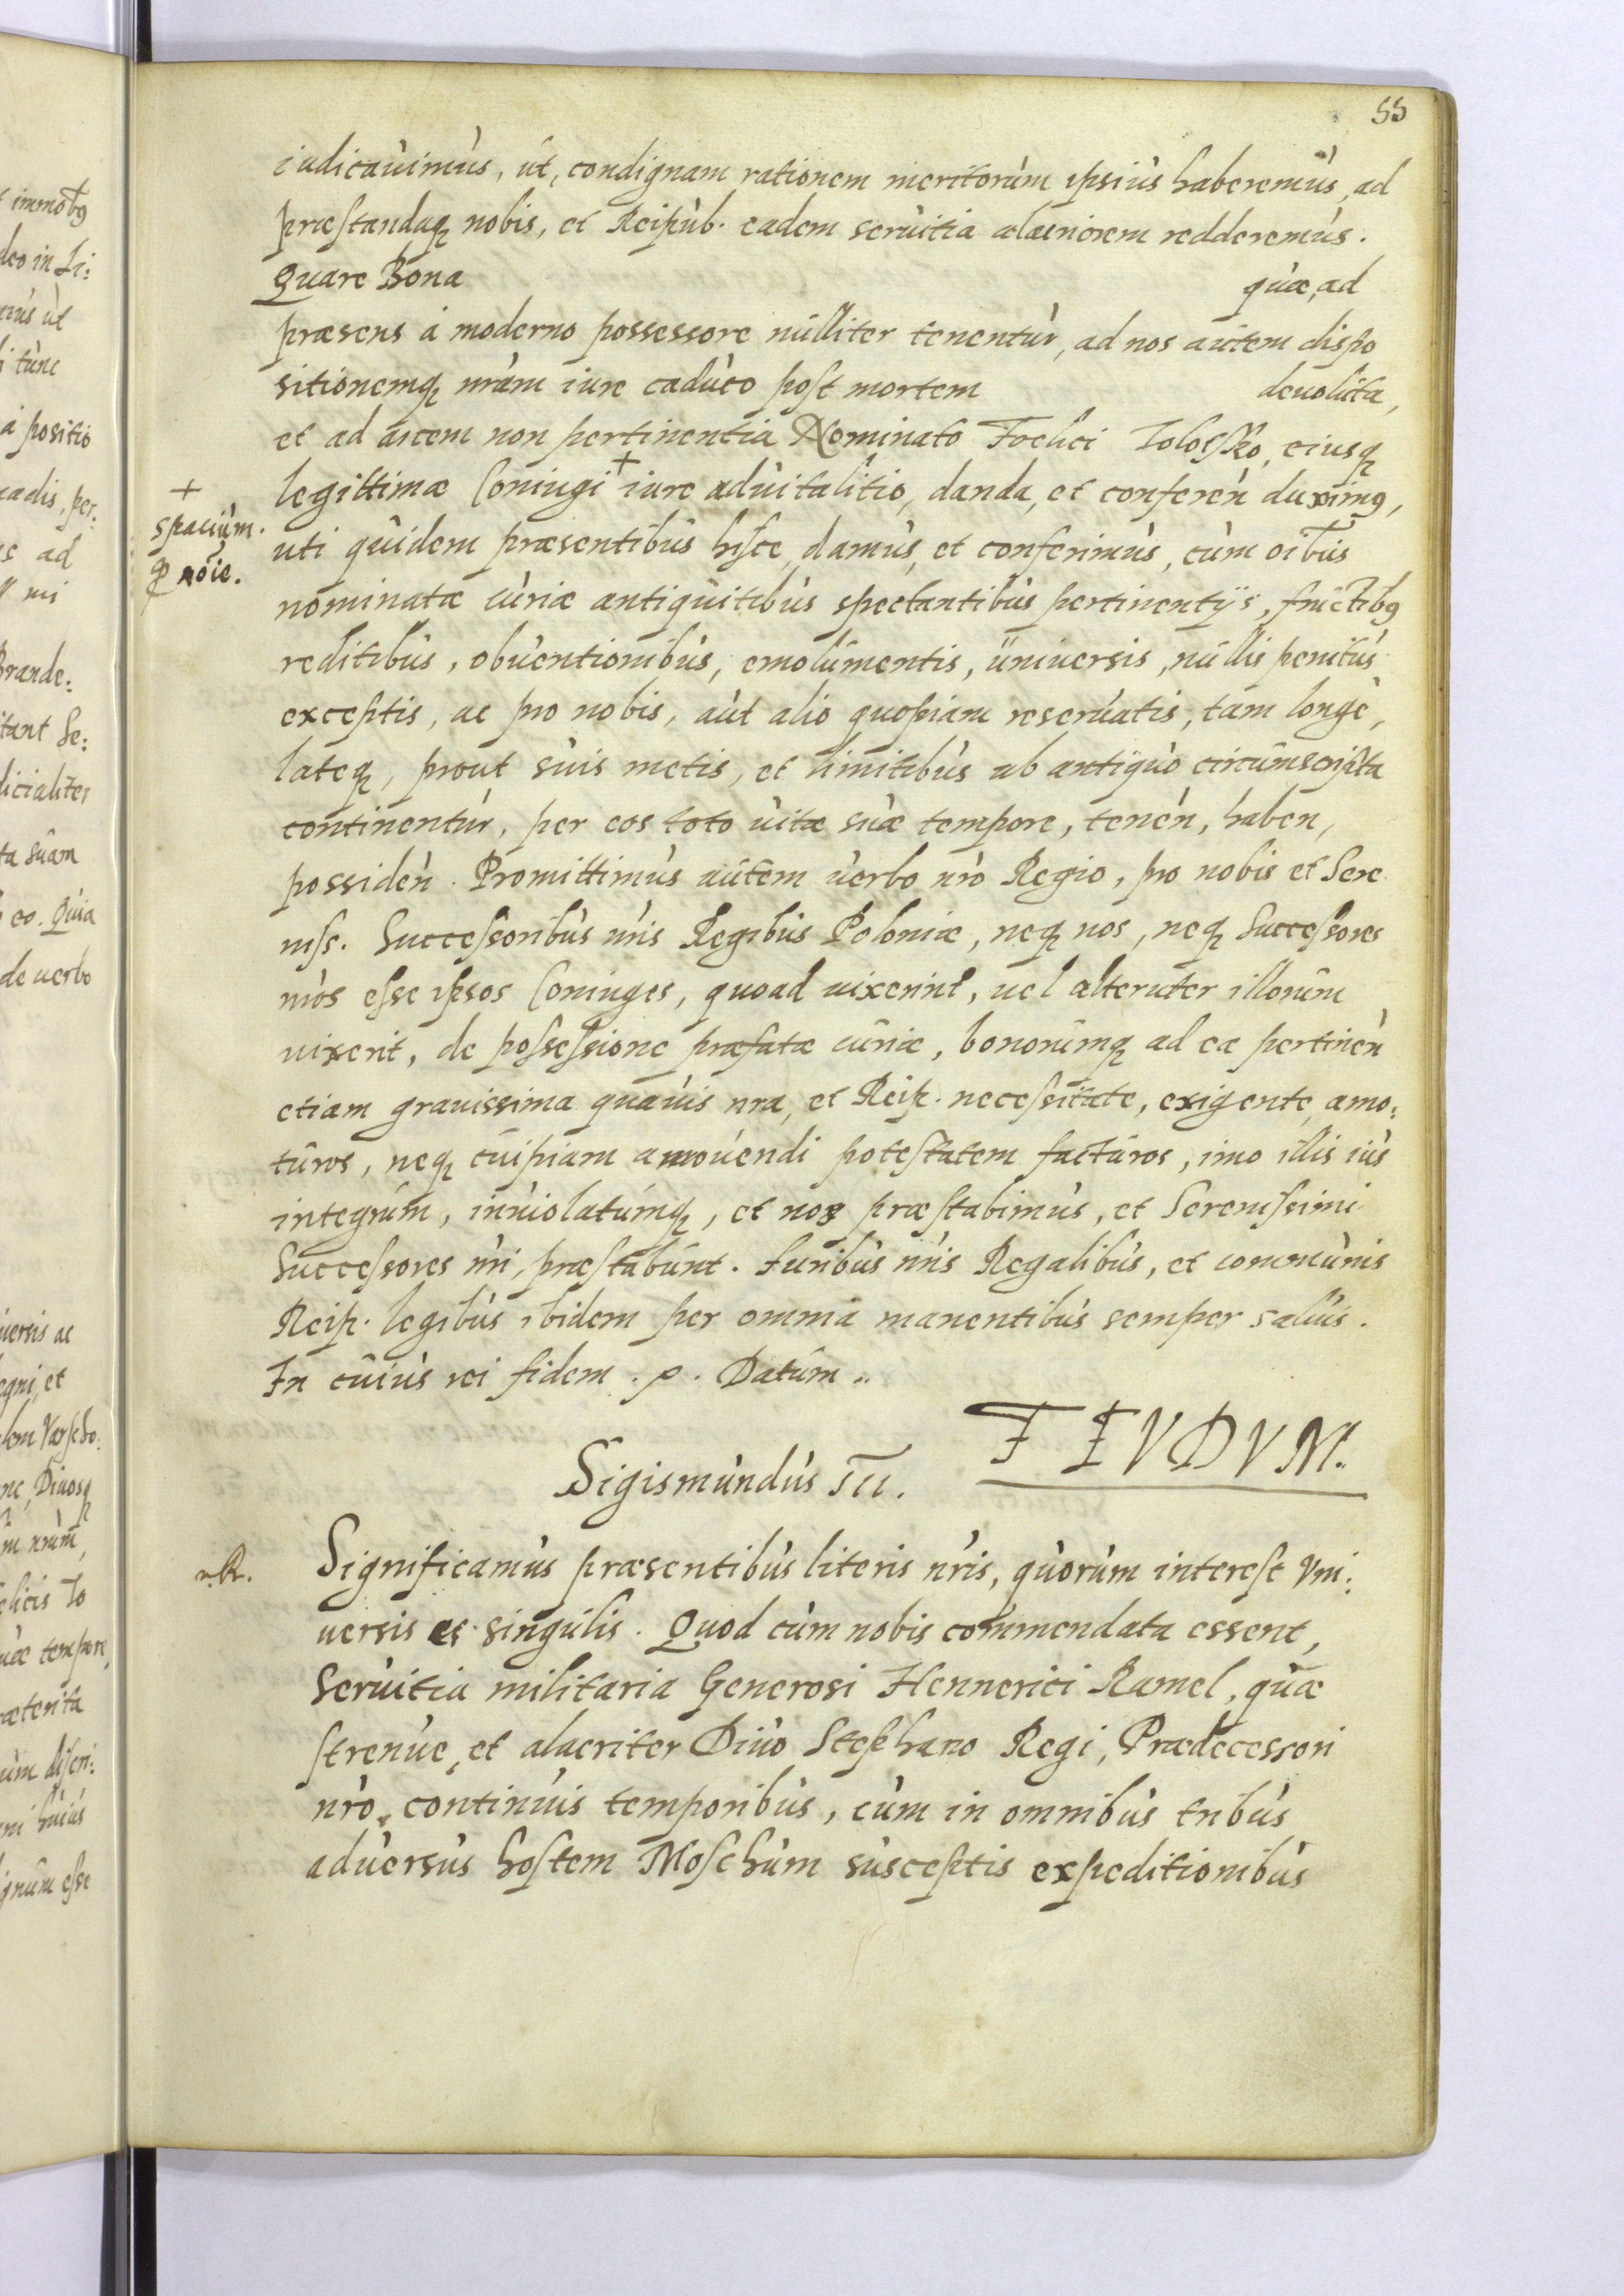 55
iudicauimus, ut, condignam rationem meritorum ipsius haberemus, ad
præstandaq nobis, et Reipub. eadem seruitia alacriorem redderemus.
Quare Bona quæ, ad
præsens à moderno possessore nulliter tenentur, ad nos autem dispo
sitionemq nràm iure caduco post mortem deuoluta,
et ad arcem non pertinentia Nominato Foelici Toloffko, eiusq
legittimæ Coniugi + iure aduitalitio, danda, et conferen duximq,
+
spacium.
p noie.
uti quidem præsentibus hisce, damus, et conferimus, cum oibus
nominatæ curiæ antiquitibus spectantibus pertinentijs, fructibq
reditibus, obuentionibus, emolumentis, uniuersis, nullis penitus
exceptis, ac pro nobis, aut alio quopiam reseruatis, tam longè,
lateq, prout suis metis, et limitibus ab antiquo circumscripta
continentur, per eos toto uitæ suæ tempore, tenen, haben,
possiden. Promittimus autem uerbo nrò Regio, pro nobis et Sere
niss. Successoribus nris Regibus Poloniæ, neq nos, neq Successores
nròs esse ipsos Coniuges, quoad uixerint, uel alteruter illorum
uixerit, de possessione præfatæ curiæ, bonorumq ad eæ pertinen
etiam grauissima quauis nra, et Reip. necessitate, exigente, amo:
turos, neq cuipiam amouendi potestatem facturos, imo illis ius
integrum, inuiolatumq, et nos præstabimus, et Serenissimi
Successores nri, præstabunt. Iuribus nris Regalibus, et communis
Reip. legibus ibidem per omnia manentibus semper saluis.
In cuius rei fidem . p. Datum..
FEVDVM.
Sigismundus III.
n.R.
Significamus præsentibus literis nris, quorum interest Vni:
uersis et singulis. Quod cum nobis commendata essent,
Seruitia militaria Generosi Hennerici Ramel, quæ
strenue, et alacriter Diuo Stephano Regi, Prædecessori
nrò, continuis temporibus, cum in omnibus tribus
aduersus hostem Moschum susceptis expeditionibus